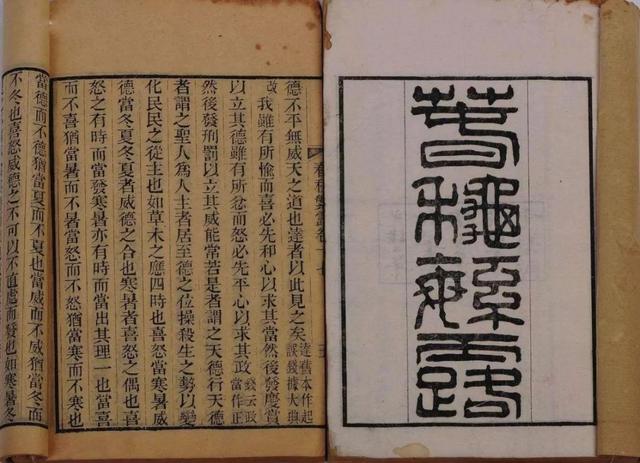 春秋繁露
春秋繁露卷十七
德不平無威天之道也達者以此見之矣達舊本作起誤錢據大典
改我雖有所愉而喜必先和心以求其當然後發慶賞
以立其德雖有所忿而怒必先平心以求其政錢云政當作正
然後發刑罰以立其威能常若是者謂之天德行天德
者謂之聖人爲人主者居至德之位操殺生之勢以變
化民民之從主也如草木之應四時也喜怒當寒暑威
德當冬夏冬夏者威德之合也寒暑者喜怒之偶也喜
怒之有時而當發寒暑亦有時而當出其理一也當喜
而不喜猶當暑而不暑當怒而不怒猶當寒而不寒也
當德而不德猶當夏而不夏也當威而不威猶當冬而
不冬也喜怒威德之不可以不直處而發也如寒暑冬